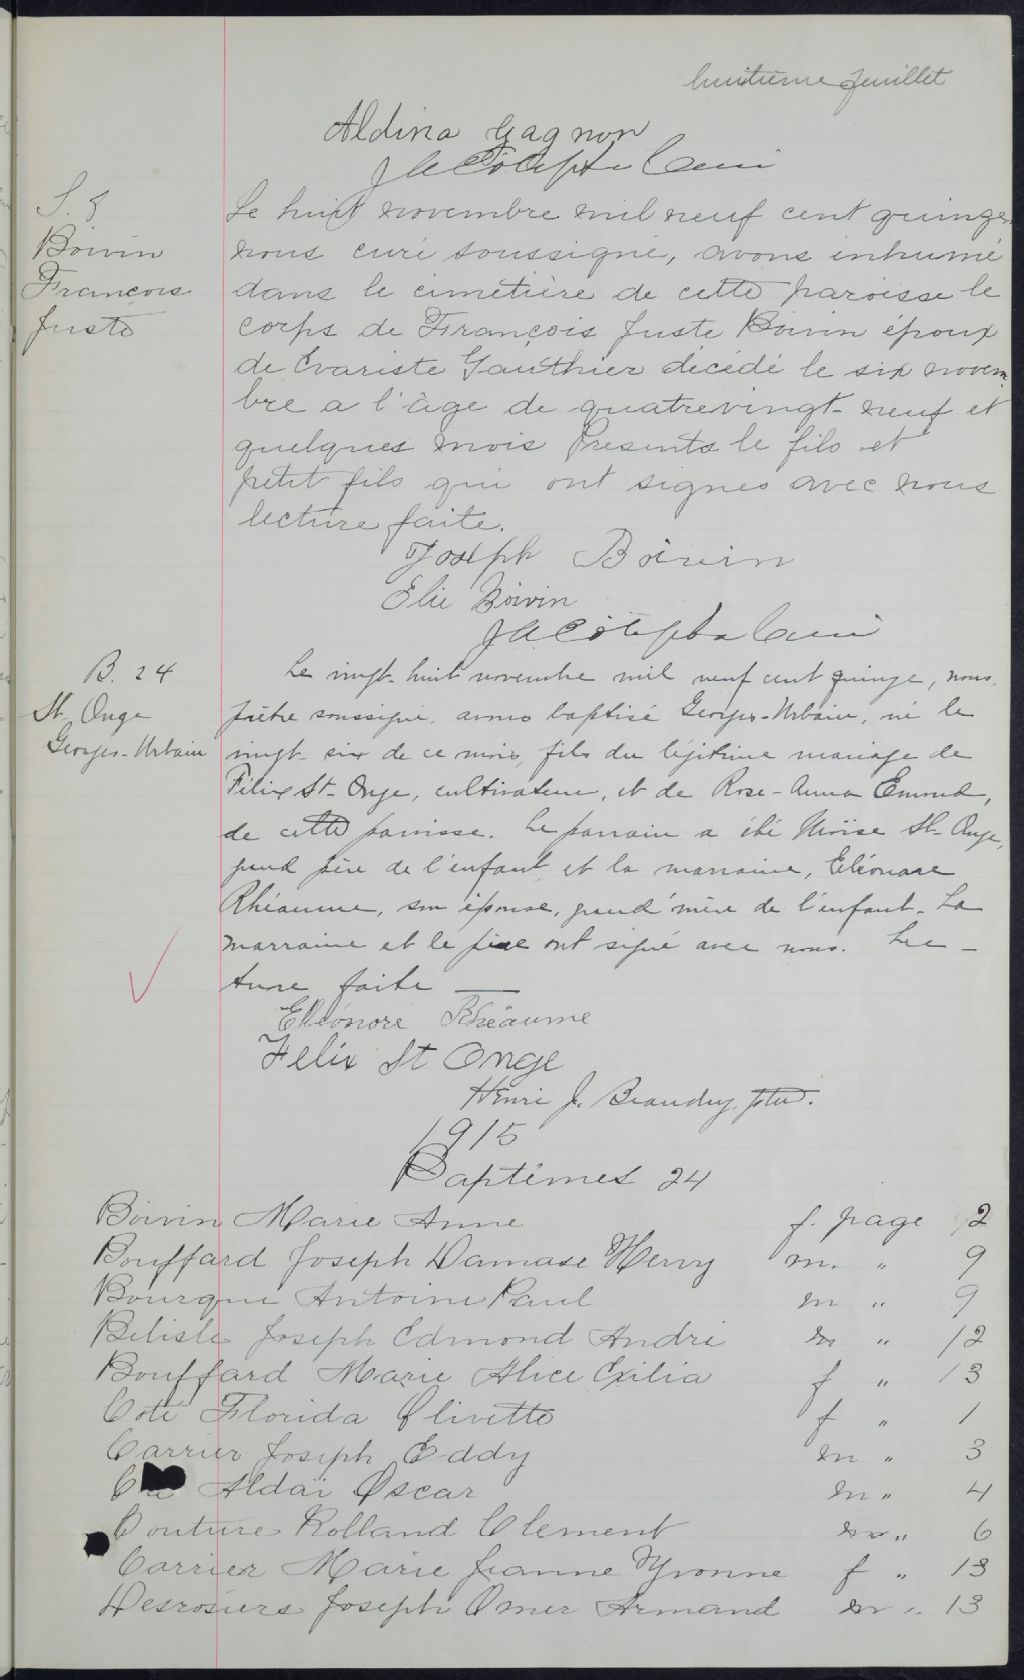 huitième feuillet
Aldina Gagnon
J A Côté ptre Curé
S. 8
Boivin
François
Juste
Le huit novembre mil neuf cent quinze
nous curé soussigné, avons inhumé
dans le cimetière de cette paroisse le
corps de François Juste Boivin époux
de Evariste Gauthier décédé le six novem
bre a l'âge de quatrevingt-neuf et
quelques mois Présents le fils et
petit fils qui ont signés avec nous
lecture faite.
Joseph Boivin
Elie Boivin
J A Côté ptre Curé
B. 24
St. Onge
Georges-Urbain
Le vingt-huit novembre mil neuf cent quinze, nous,
prêtre soussigné, avons baptisé Georges-Urbain, né le
vingt-six de ce mois, fils du légitime mariage de
Félix St-Onge, cultivateur, et de Rose-Anna Emond,
de cette paroisse. Le parrain a été Moïse St-Onge,
grand père de l'enfant et la marraine, Eléonore
Rhéaume, son épouse, grand'mère de l'enfant. La
marraine et le père ont signé avec nous. Lec-
ture faite
Elléonore Rhéaume
Felix St Onge
Henri J. Beaudry, ptre.
1915
Baptêmes 24
Boivin Marie Anne f. page 2
Bouffard Joseph Damase Henry m. " 9
Bourque Antoine Paul m " 9
Belisle Joseph Edmond André m " 12
Bouffard Marie Alice Exilia f " 13
Coté Florida Olivette f " 1
Carrier Joseph Eddy m " 3
Aldaï Oscar m " 4
Couture Rolland Clement m " 6
Carrier Marie Jeanne Yvonne f " 13
Desrosiers Joseph Omer Armand m " 13